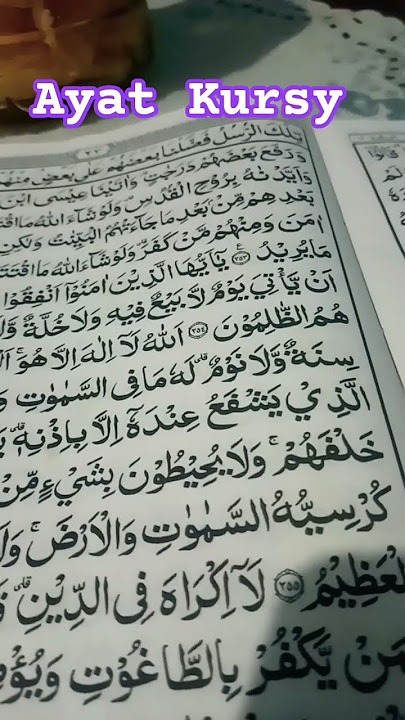 Ayat Kursy
٤٢
تِلْكَ الرُّسُلُ فَضَّلْنَا بَعْضَهُمْ عَلٰى بَعْضٍ مِنْهُمْ
وَرَفَعَ بَعْضَهُمْ دَرَجٰتٍ وَاٰتَيْنَا عِيْسَى ابْنَ
وَاَيَّدْنٰهُ بِرُوْحِ الْقُدُسِ وَلَوْ شَاۤءَ اللّٰهُ مَا اقْتَ
بَعْدِهِمْ مِّنْۢ بَعْدِ مَا جَاۤءَتْهُمُ الْبَيِّنٰتُ وَلٰكِنِ
اٰمَنَ وَمِنْهُمْ مَّنْ كَفَرَ وَلَوْ شَاۤءَ اللّٰهُ مَا اقْتَتَ
مَا يُرِيْدُ ٢٥٣ يٰٓاَيُّهَا الَّذِيْنَ اٰمَنُوْٓا اَنْفِقُوْا
اَنْ يَّأْتِيَ يَوْمٌ لَّا بَيْعٌ فِيْهِ وَلَا خُلَّةٌ وَّلَ
هُمُ الظّٰلِمُوْنَ ٢٥٤ اَللّٰهُ لَآ اِلٰهَ اِلَّا هُوَۚ الْ
سِنَةٌ وَّلَا نَوْمٌۗ لَهٗ مَا فِى السَّمٰوٰتِ وَ
الَّذِيْ يَشْفَعُ عِنْدَهٗٓ اِلَّا بِاِذْنِهٖۗ يَ
خَلْفَهُمْۚ وَلَا يُحِيْطُوْنَ بِشَيْءٍ مِّنْ
كُرْسِيُّهُ السَّمٰوٰتِ وَالْاَرْضَۚ وَلَ
لْعَظِيْمُ ٢٥٥ لَآ اِكْرَاهَ فِى الدِّيْنِۗ قَ
مَنْ يَّكْفُرْ بِالطَّاغُوْتِ وَيُؤْمِ